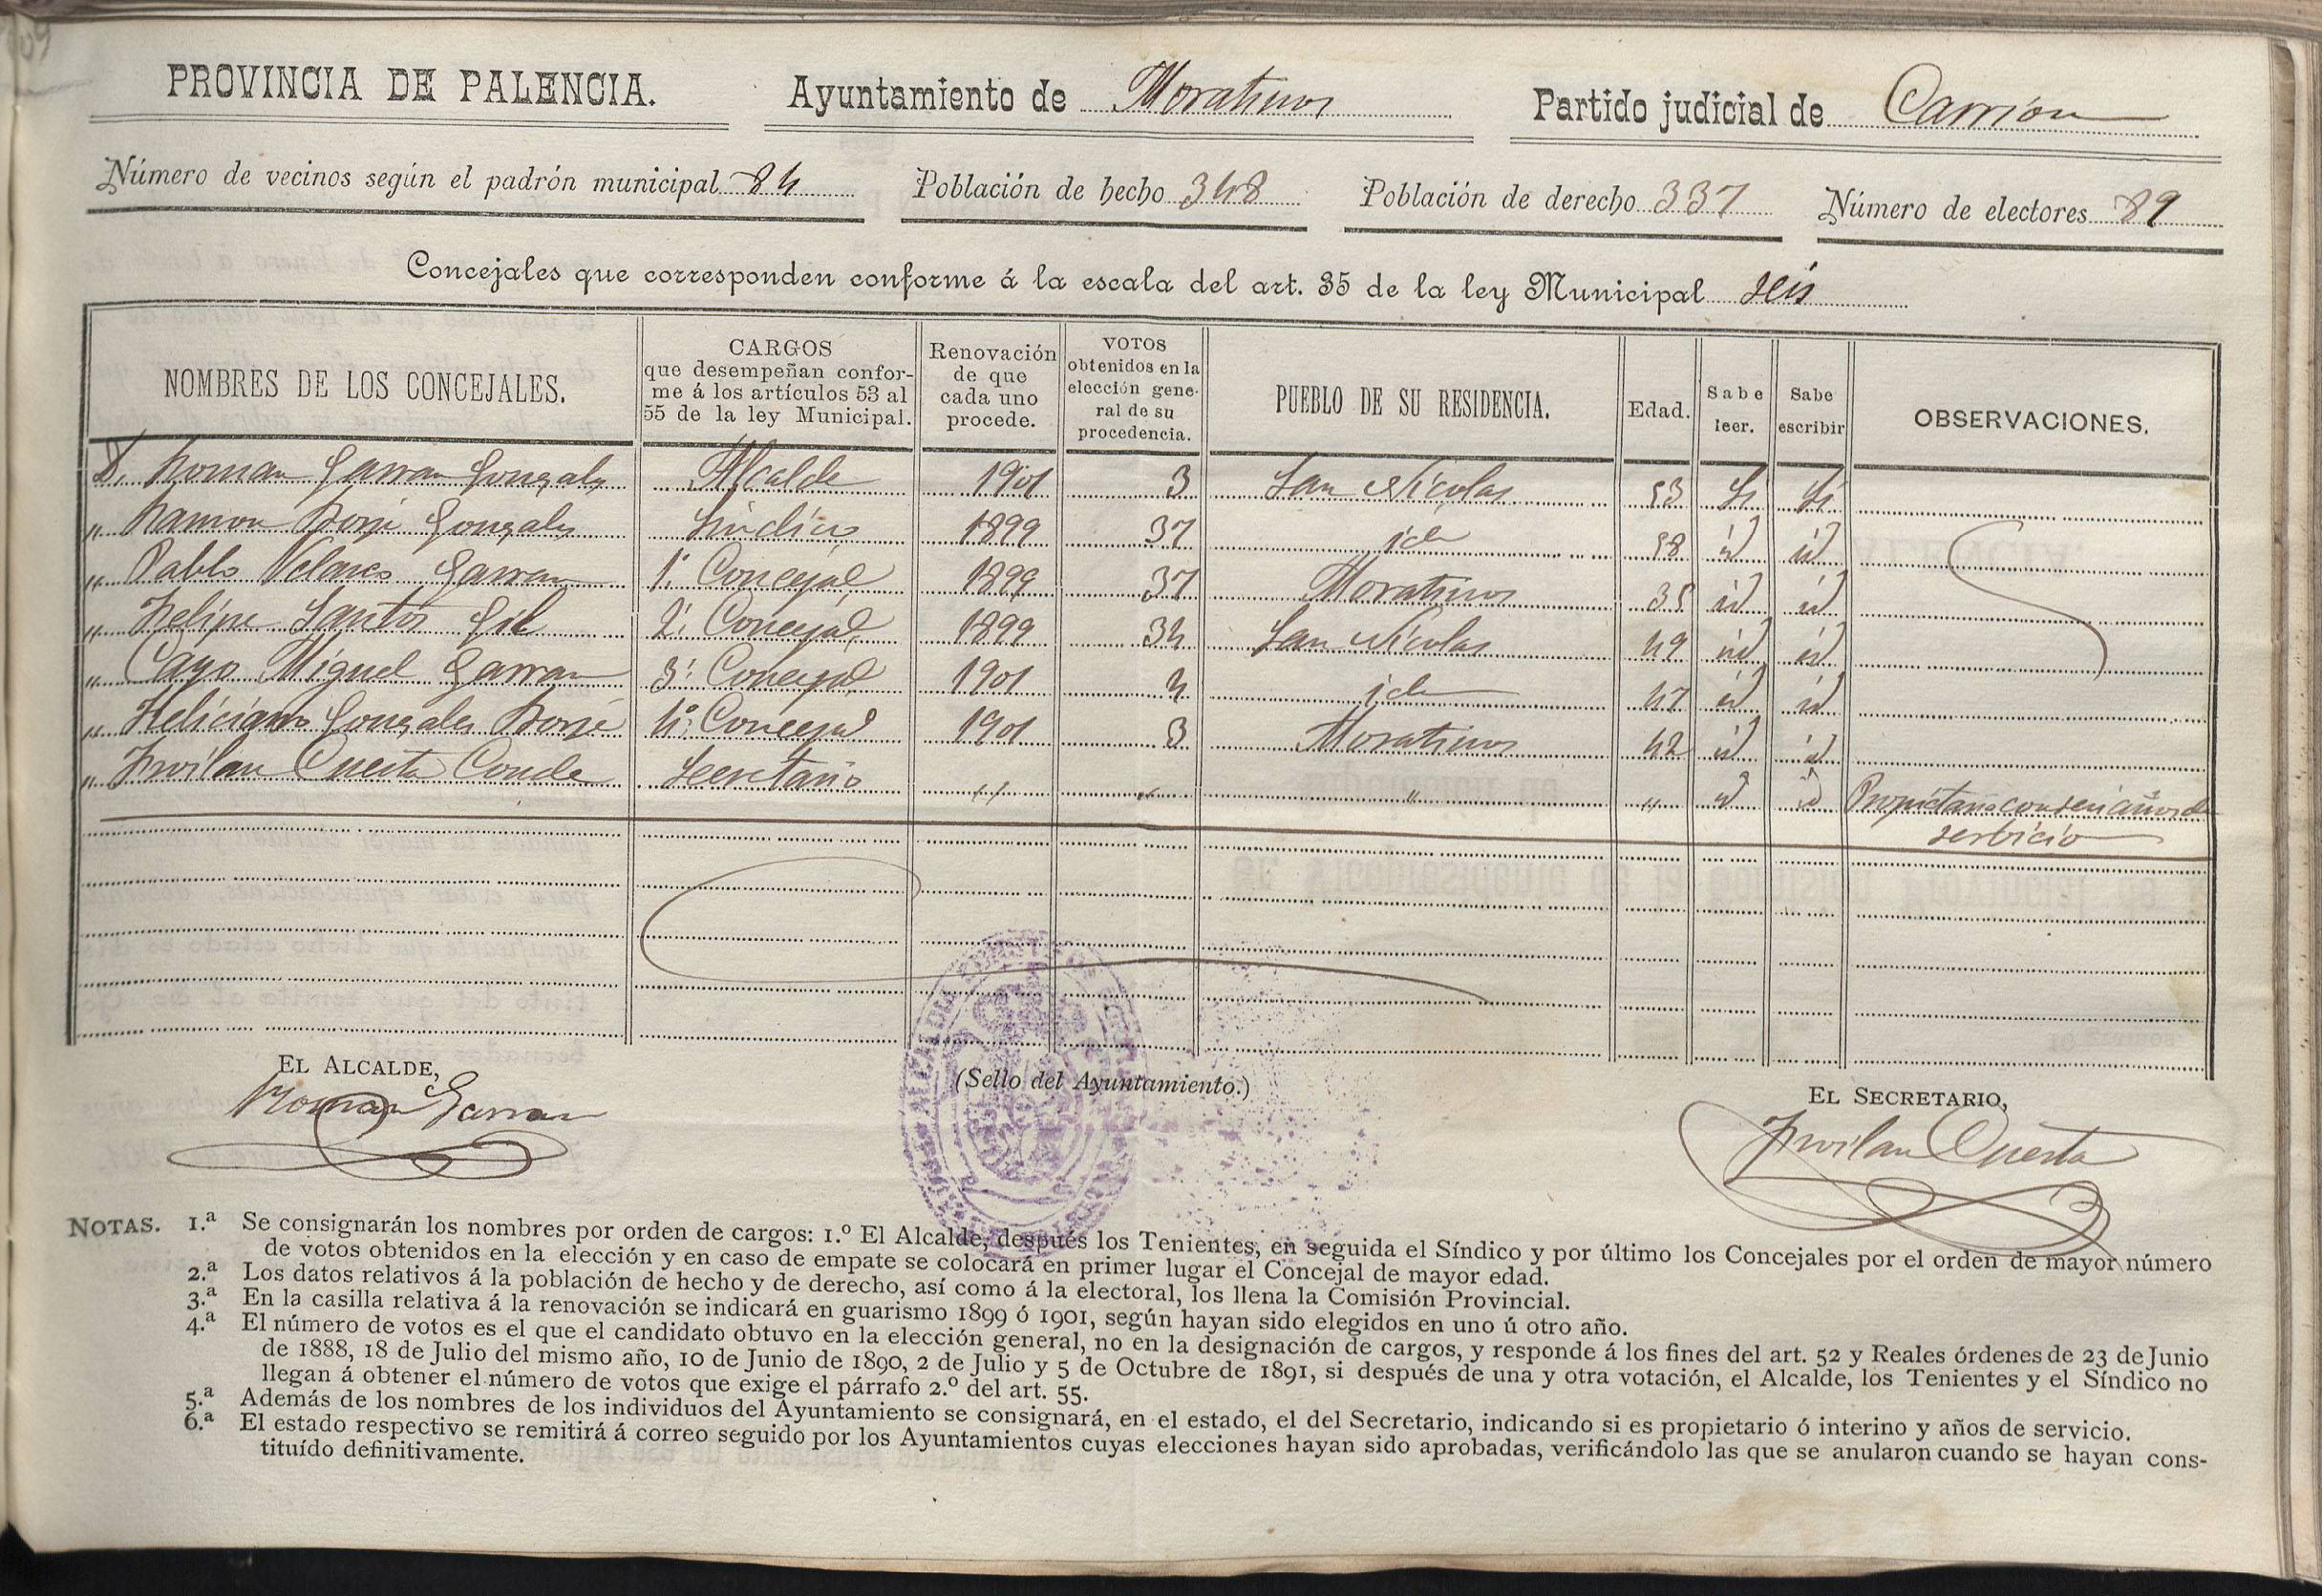 PROVINCIA DE PALENCIA. Ayuntamiento de Moratinos Partido judicial de Carrión
Número de vecinos según el padrón municipal 84 Población de hecho 348 Población de derecho 337 Número de electores 89
Concejales que corresponden conforme á la escala del art. 35 de la ley Municipal seis
NOMBRES DE LOS CONCEJALES. CARGOS que desempeñan conforme á los artículos 53 al 55 de la ley Municipal. Renovación de que cada uno procede. VOTOS obtenidos en la elección general de su procedencia. PUEBLO DE SU RESIDENCIA. Edad. Sabe leer. Sabe escribir OBSERVACIONES.
D. Roman Garran Gonzalez Alcalde 1901 3 San Nicolas 53 Si Si
" Ramon Borje Gonzalez Sindico 1899 37 id 58 id id
" Pablo Velasco Garran 1º Concejal 1899 37 Moratinos 35 id id
" Felipe Santos Gil 2º Concejal 1899 34 San Nicolas 49 id id
" Cayo Miguel Garran 3º Concejal 1901 4 id 47 id id
" Feliciano Gonzalez Borje 4º Concejal 1901 3 Moratinos 42 id id
" Froilan Cuesta Conde Secretario " " " " id id Propietario con seis años de
serbicio
EL ALCALDE,
Roman Garran
(Sello del Ayuntamiento.)
EL SECRETARIO,
Froilan Cuesta
NOTAS. 1.ª Se consignarán los nombres por orden de cargos: 1.º El Alcalde, después los Tenientes, en seguida el Síndico y por último los Concejales por el orden de mayor número
de votos obtenidos en la elección y en caso de empate se colocará en primer lugar el Concejal de mayor edad.
2.ª Los datos relativos á la población de hecho y de derecho, así como á la electoral, los llena la Comisión Provincial.
3.ª En la casilla relativa á la renovación se indicará en guarismo 1899 ó 1901, según hayan sido elegidos en uno ú otro año.
4.ª El número de votos es el que el candidato obtuvo en la elección general, no en la designación de cargos, y responde á los fines del art. 52 y Reales órdenes de 23 de Junio
de 1888, 18 de Julio del mismo año, 10 de Junio de 1890, 2 de Julio y 5 de Octubre de 1891, si después de una y otra votación, el Alcalde, los Tenientes y el Síndico no
llegan á obtener el número de votos que exige el párrafo 2.º del art. 55.
5.ª Además de los nombres de los individuos del Ayuntamiento se consignará, en el estado, el del Secretario, indicando si es propietario ó interino y años de servicio.
6.ª El estado respectivo se remitirá á correo seguido por los Ayuntamientos cuyas elecciones hayan sido aprobadas, verificándolo las que se anularon cuando se hayan cons-
tituído definitivamente.